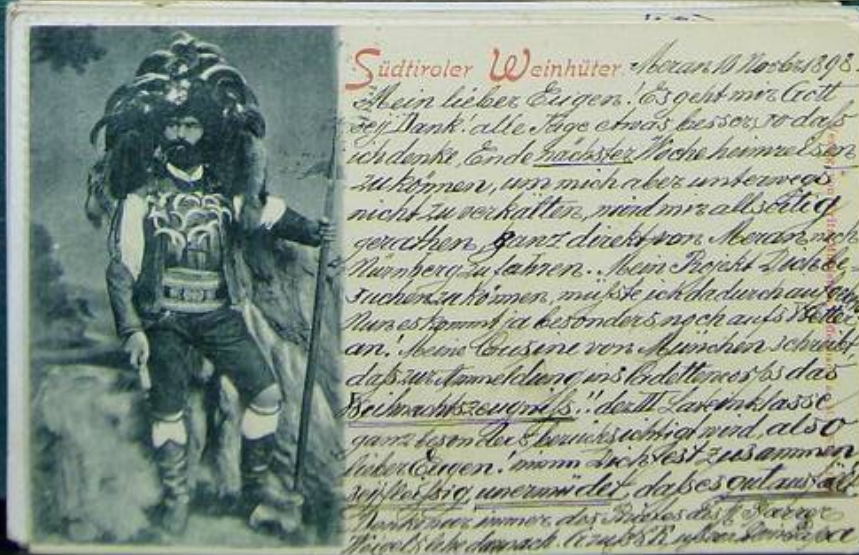 Südtiroler Weinhüter. Meran 10 Novbr 1898.
Mein lieber Eugen! Es geht mir Gott
sei Dank! alle Tage etwas besser, so daß
ich denke, Ende nächster Woche heimreisen
zu können, um mich aber unterwegs
nicht zu verkälten, wird mir allseitig
gerathen, ganz direkt von Meran nach
Nürnberg zu fahren. Mein Projekt Dich be-
suchen zu können, müßte ich dadurch aufgeben
Nun es kommt ja besonders noch aufs Wetter
an! Meine Cusine von München schreibt,
daß zur Anmeldung ins Cadettencorps das
Weihnachtszeugniß!! der III Lateinklasse
ganz besonders berücksichtigt wird, also
lieber Eugen! nimm Dich fest zusammen
sei fleißig, unermüdet, daß es gut ausfällt.
Denke nur immer des Pfarrer
lebe darnach. Papa